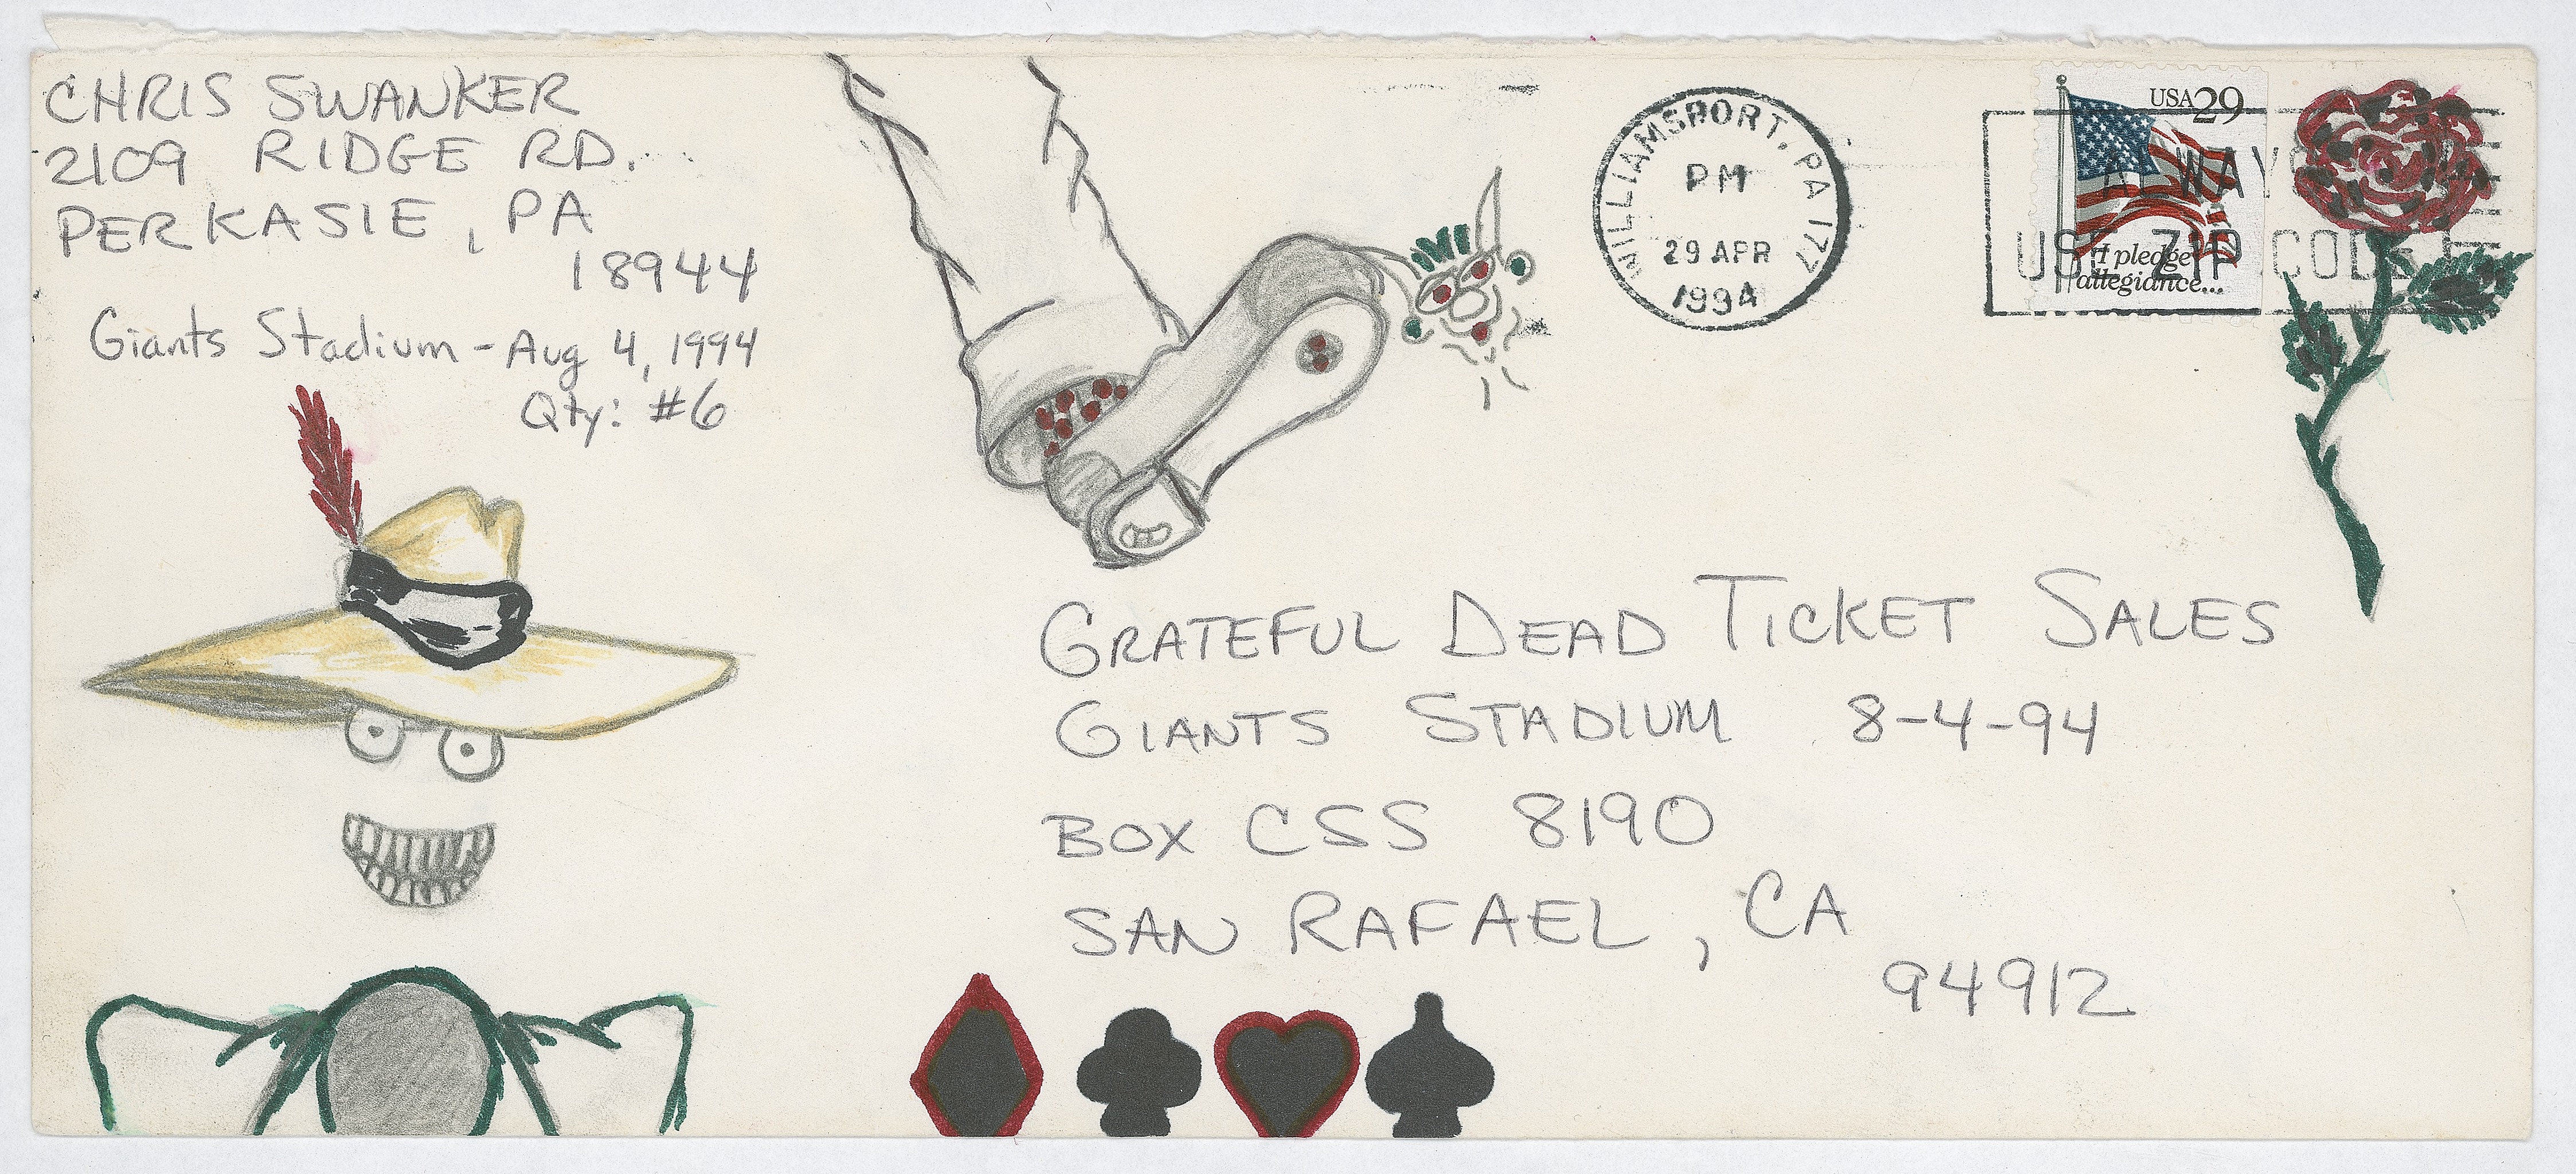 CHRIS SWANKER
2109 RIDGE RD.
PERKASIE, PA
18944
Giants Stadium - Aug 4, 1994
Qty: #6
WILLIAMSPORT, PA 177
PM
29 APR
1994
USA 29
I pledge
allegiance...
ALWAYS
USE ZIP CODE
GRATEFUL DEAD TICKET SALES
GIANTS STADIUM 8-4-94
BOX CSS 8190
SAN RAFAEL, CA
94912